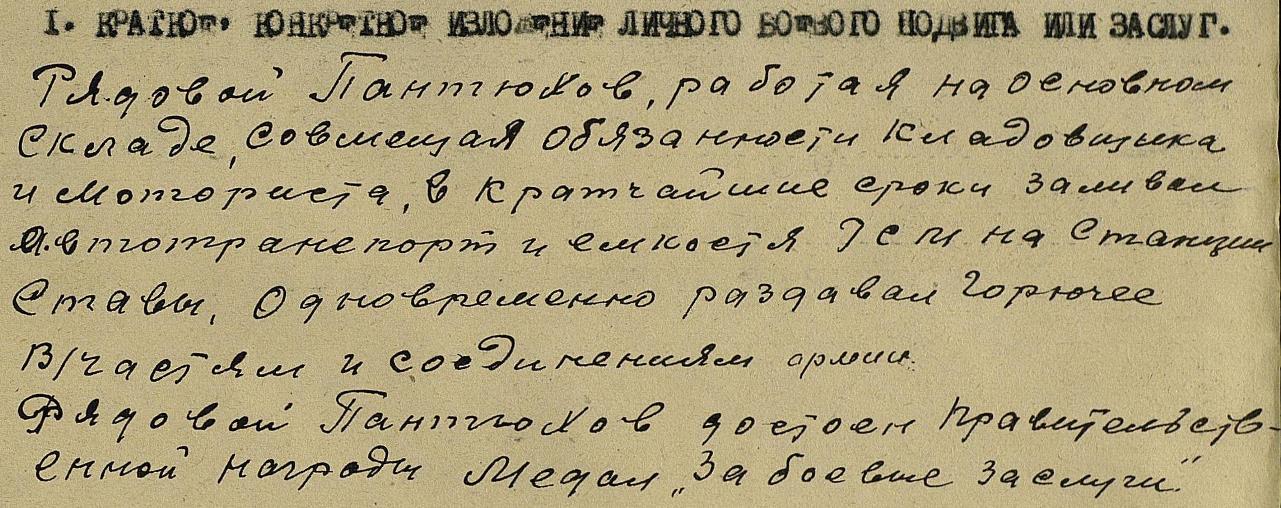 I. КРАТКОЕ КОНКРЕТНОЕ ИЗЛОЖЕНИЕ ЛИЧНОГО БОЕВОГО ПОДВИГА ИЛИ ЗАСЛУГ.
Рядовой Пантюхов, работая на основном
складе, совмещая обязанности кладовщика
и моториста, в кратчайшие сроки заливал
автотранспорт и емкостя ГСМ на станции
Ставы, одновременно раздавал горючее
в/частям и соединениям армии.
Рядовой Пантюхов достоен правительств-
енной награды Медал „За боевые заслуги".